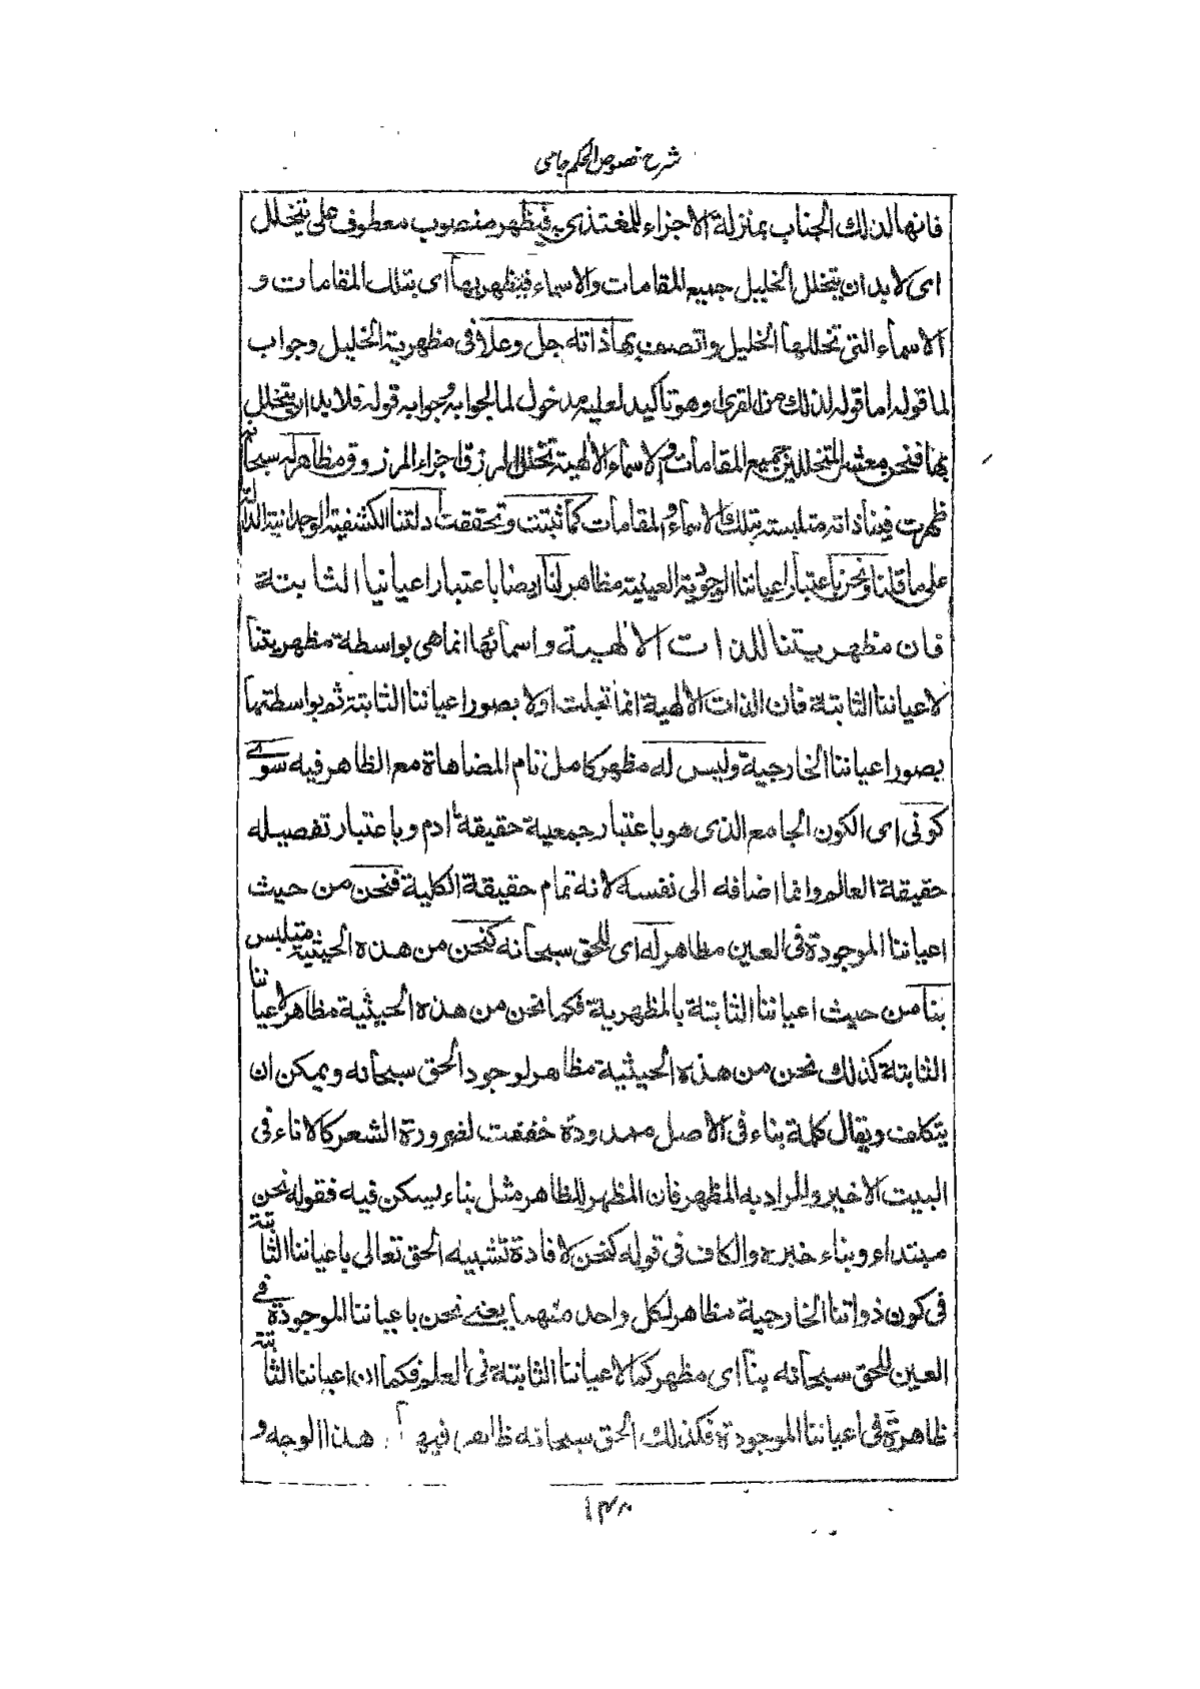 شرح فصوص الحكم جامى
فانها لذلك الجناب بمنزلة الاجزاء للمغتذى به فيظهر منصوب معطوف على يتخلل
اى لا بد ان يتخلل الخليل جميع المقامات والاسماء فيظهر بها اى بتلك المقامات و
الاسماء التى تخللها الخليل واتصف بها ذاته جل وعلا فى مظهرية الخليل وجواب
لما قوله اما قوله لذلك من القرى وهو تأكيد لعلية مدخول لما لجوابه وجوابه قوله فلا بد ان يتخلل
بها فنحن معشر المتخللين جميع المقامات والاسماء الالهية تخلل الرزق اجزاء المرزوق مظاهر له سبحانه
ظهرت فينا ذاته متلبسة بتلك الاسماء والمقامات كما ثبتت وتحققت ادلتنا الكشفية الوجدانية الدالة
على ما قلنا ونحن باعتبار اعياننا الوجودية العينية مظاهر لنا ايضا باعتبار اعياننا الثابتة
فان مظهريتنا للذات الالهية واسمائها انما هى بواسطة مظهريتنا
لاعياننا الثابتة فان الذات الالهية انما تجلت اولا بصور اعياننا الثابتة ثم بواسطتها
بصور اعياننا الخارجية وليس له مظهر كامل تام المضاهاة مع الظاهر فيه سوى
كونى اى الكون الجامع الذى هو باعتبار جمعية حقيقة ادم وباعتبار تفصيله
حقيقة العالم وانما اضافه الى نفسه لانه تمام حقيقة الكلية فنحن من حيث
اعياننا الموجودة فى العين مظاهر له اى للحق سبحانه كنحن من هذه الحيثية متلبس
بنا من حيث اعياننا الثابتة بالمظهرية فكما نحن من هذه الحيثية مظاهر لاعياننا
الثابتة كذلك نحن من هذه الحيثية مظاهر لوجود الحق سبحانه ويمكن ان
يتكلف ويقال كلمة بناء فى الاصل ممدودة خففت لضرورة الشعر كالاناء فى
البيت الاخير والمراد به المظهر فان المظهر للظاهر مثل بناء يسكن فيه فقوله نحن
مبتداء وبناء خبره والكاف فى قوله كنحن لافادة تشبيه الحق تعالى باعياننا الثابتة
فى كون ذواتنا الخارجية مظاهر لكل واحد منهما يعنى نحن باعياننا الموجودة فى
العين للحق سبحانه بنا اى مظهر كما لاعياننا الثابتة فى العلم فكما ان اعياننا الثابتة
ظاهرة فى اعياننا الموجودة فكذلك الحق سبحانه ظاهر فيها هذا الوجه و